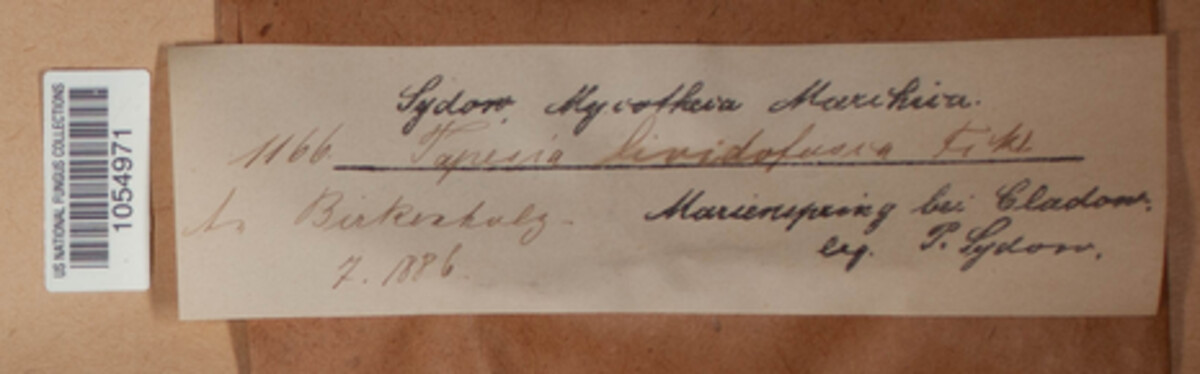 US NATIONAL FUNGUS COLLECTIONS
1054971
Sydow, Mycotheca Marchica.
1166. Tapesia lividofusca Fckl.
An Birkenholz.
7. 1886.
Marienspring bei Cladow.
leg. P. Sydow.